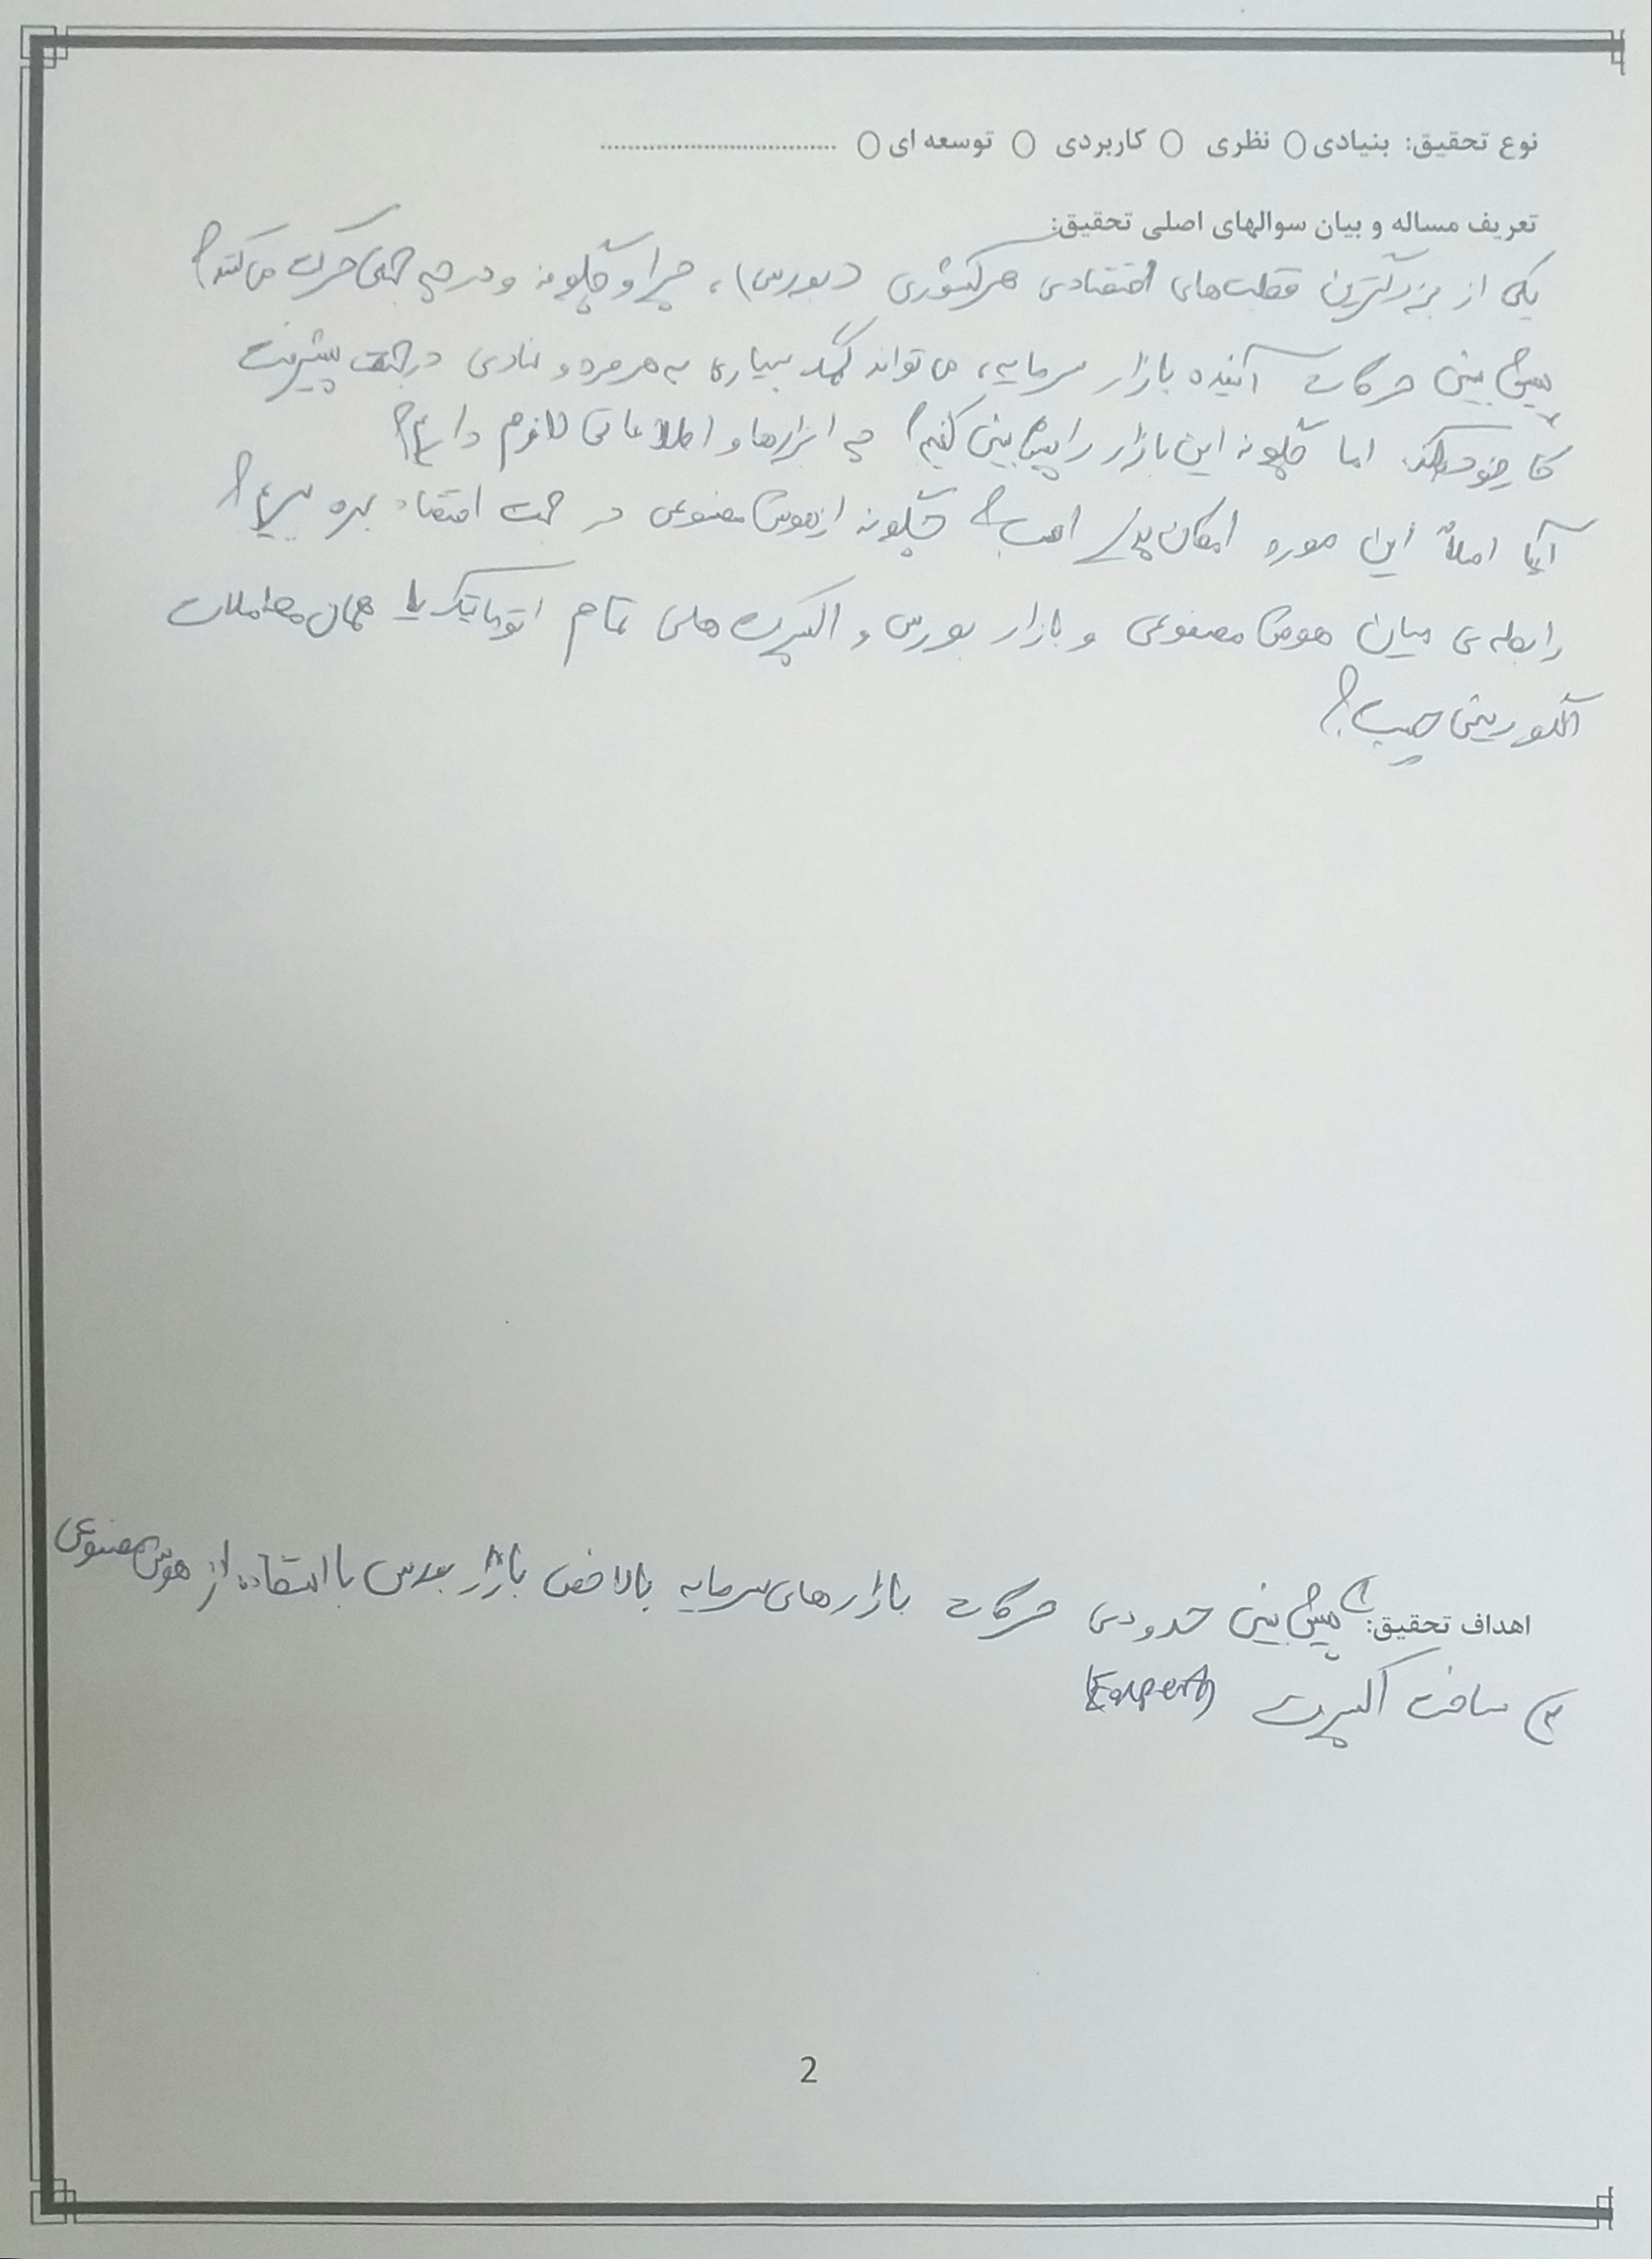 نوع تحقیق: بنیادی○ نظری ○ کاربردی ○ توسعه ای ○ ..................................
تعریف مساله و بیان سوالهای اصلی تحقیق:
یکی از بزرگترین قطب‌های اقتصادی هر کشوری (بورس)، چرا و چگونه و در چه جهتی حرکت می‌کند؟
پیش‌بینی حرکات آینده بازار سرمایه، می‌تواند کمک بسیاری به هر فرد و نهادی در جهت پیشرفت
کار خود کند. اما چگونه این بازار را پیش‌بینی کنیم؟ چه ابزارها و اطلاعاتی لازم داریم؟
آیا اصلاً این مورد امکان‌پذیر است؟ چگونه از هوش مصنوعی در جهت اقتصاد بهره ببریم؟
رابطه‌ی میان هوش مصنوعی و بازار بورس و اکسپرت‌های تمام اتوماتیک یا همان معاملات
الگوریتمی چیست؟
اهداف تحقیق: ۱) پیش‌بینی حدودی حرکات بازارهای سرمایه بالاخص بازار بورس با استفاده از هوش مصنوعی
۲) ساخت اکسپرت (Expert)
2